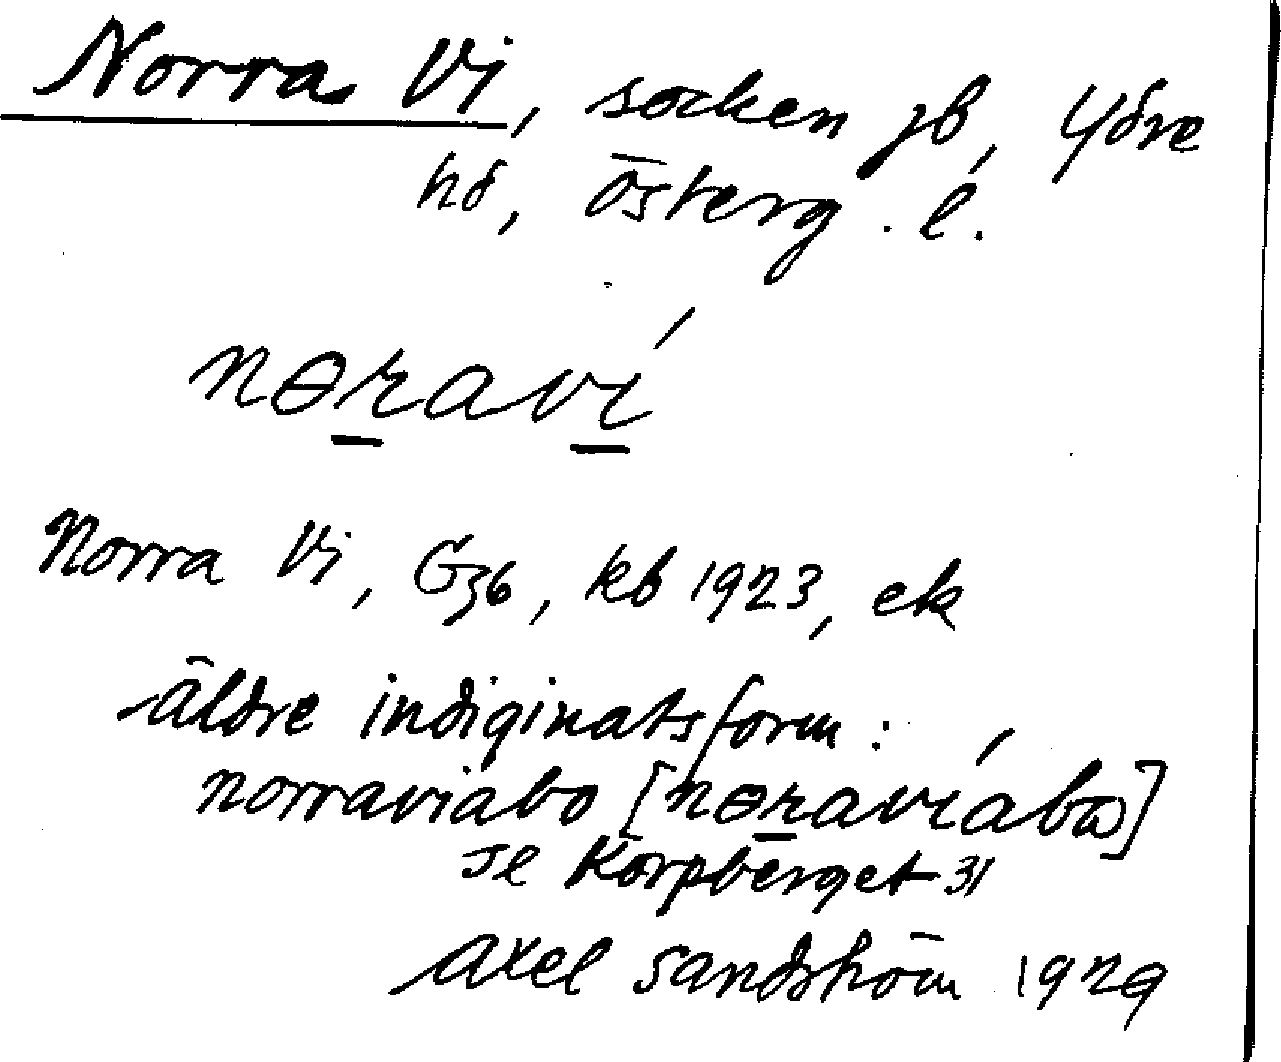 Norra Vi, socken jb, Ydre
hd, Österg. l.
nɵravi
Norra Vi, G36, kb 1923, ek
äldre indiginatsform:
norraviabo [nɵraviabω]
se Korpberget 31
Axel Sandström 1929